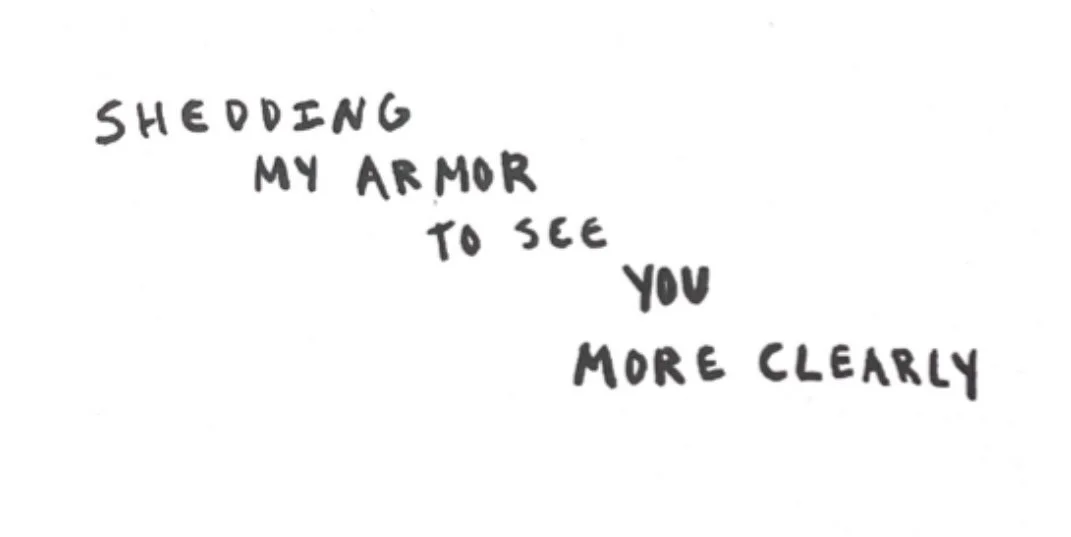 SHEDDING
MY ARMOR
TO SEE
YOU
MORE CLEARLY